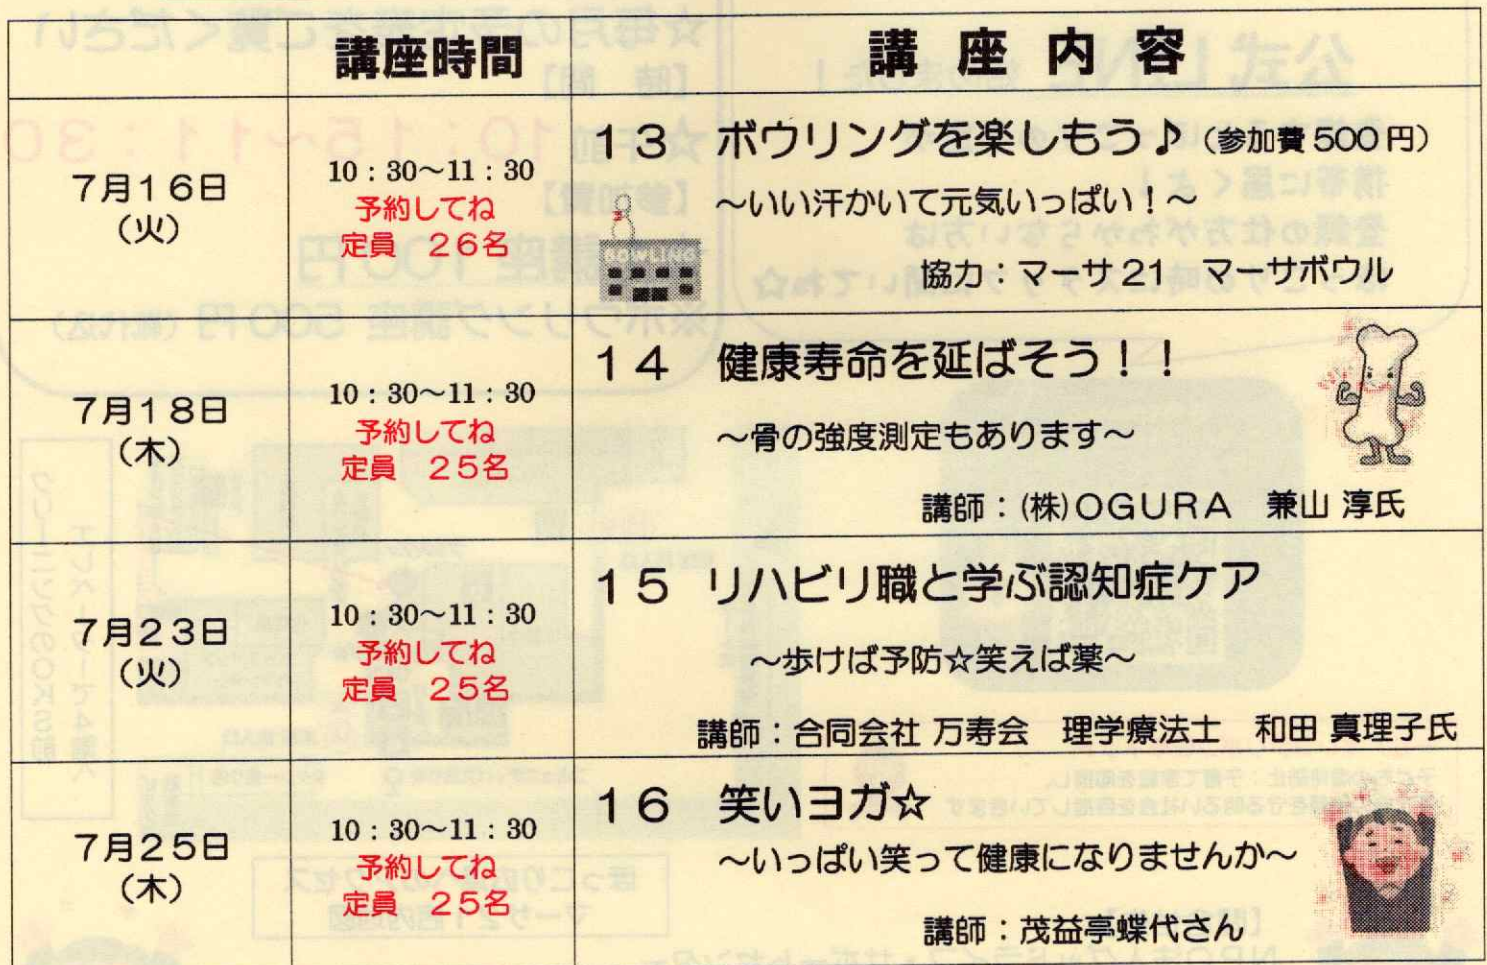 講座時間
講座内容
7月16日
(火)
10:30~11:30
予約してね
定員 26名
13 ボウリングを楽しもう♪(参加費500円)
~いい汗かいて元気いっぱい!~
BOWLING
協力:マーサ21 マーサボウル
7月18日
(木)
10:30~11:30
予約してね
定員 25名
14 健康寿命を延ばそう!!
~骨の強度測定もあります~
講師:(株)OGURA 兼山 淳氏
7月23日
(火)
10:30~11:30
予約してね
定員 25名
15 リハビリ職と学ぶ認知症ケア
~歩けば予防☆笑えば薬~
講師:合同会社 万寿会 理学療法士 和田 真理子氏
7月25日
(木)
10:30~11:30
予約してね
定員 25名
16 笑いヨガ☆
~いっぱい笑って健康になりませんか~
講師:茂益亭蝶代さん